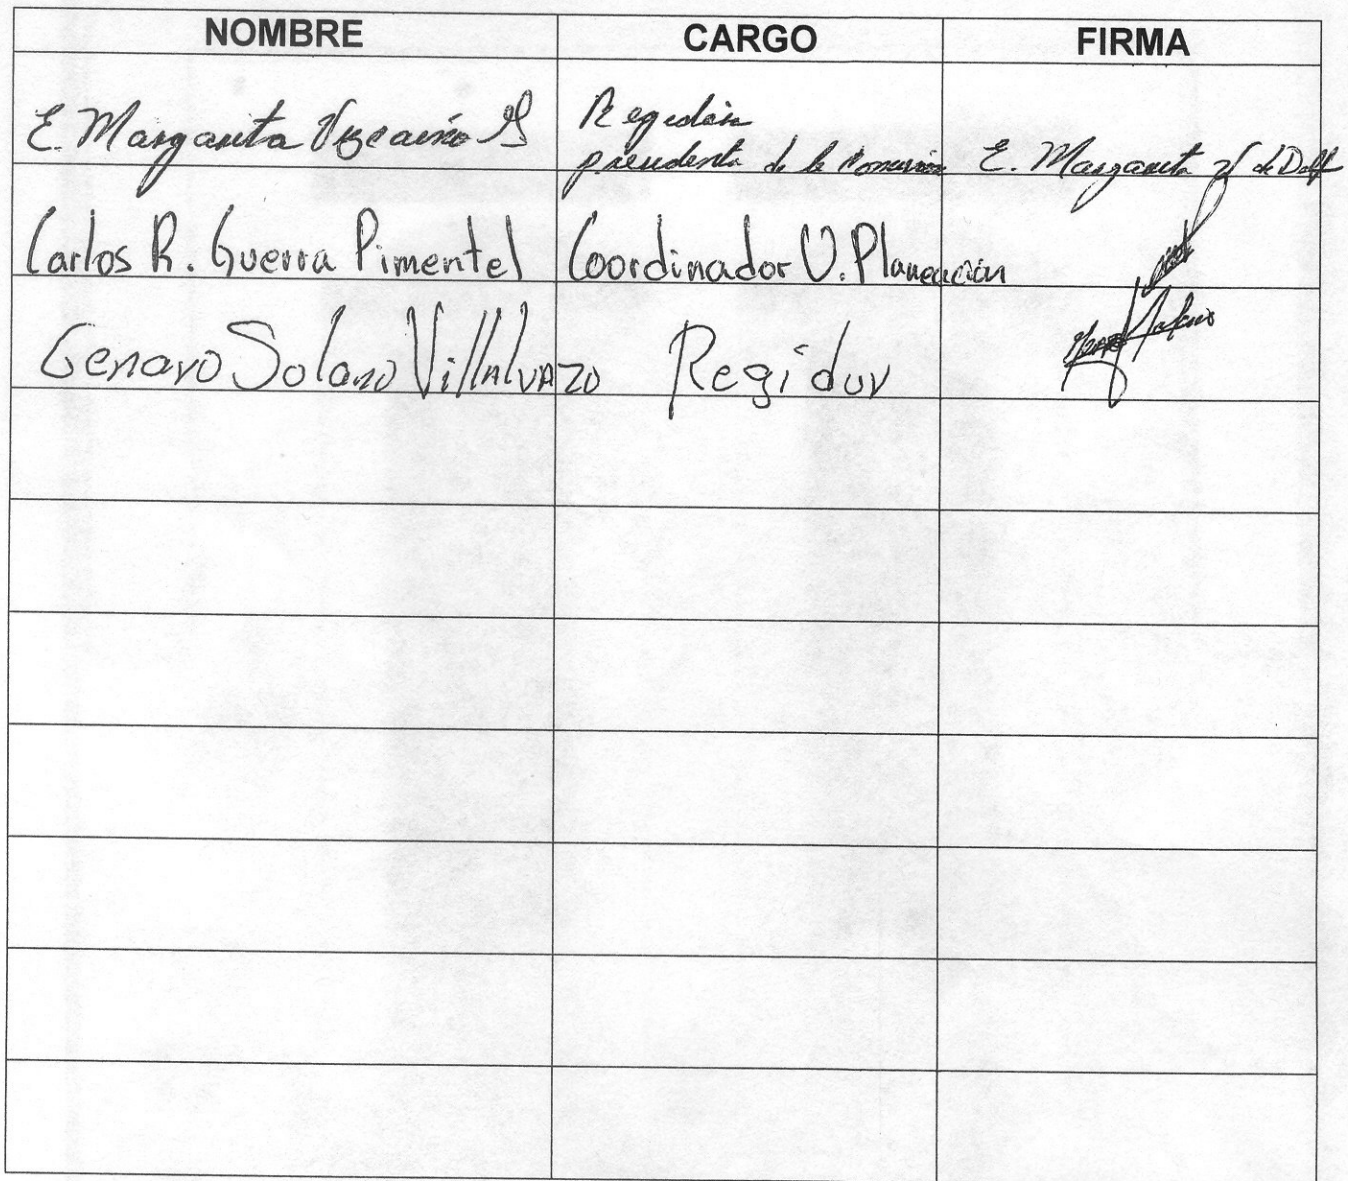 NOMBRE CARGO FIRMA
E. Margarita Vizcaíno G Regidora
presidenta de la Comisión E. Margarita V de Dolf
Carlos R. Guerra Pimentel Coordinador U. Planeación
Genaro Solano Villalvazo Regidor